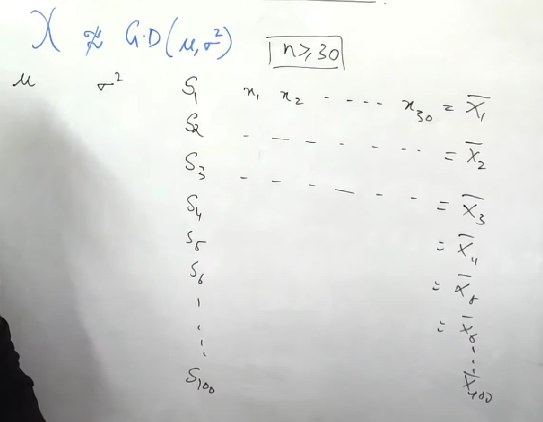 X ≉ G.D(μ,σ²) n≥30
μ σ² S₁ x₁ x₂ ---- x₃₀ = X̄₁
S₂ - - - - - - = X̄₂
S₃ - - - - - - = X̄₃
S₄ = X̄₄
S₅ = X̄₅
S₆ = X̄₆
S₁₀₀ X̄₁₀₀